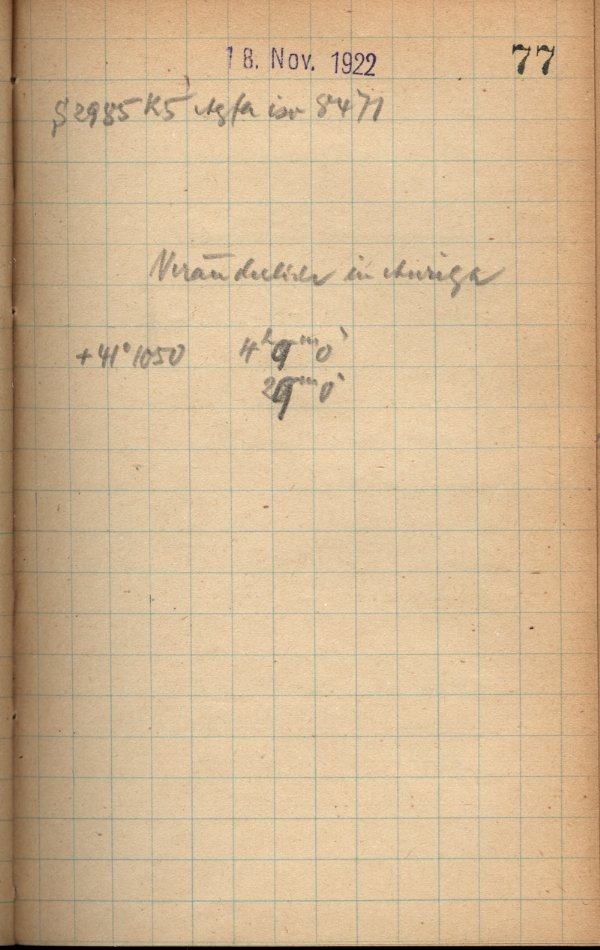 18. Nov. 1922 77
S2985 K5 Agfa iso 8471
Veränderliche in Auriga
+41°1050 4ʰ 9ᵐ 0ˢ
29ᵐ 0ˢ